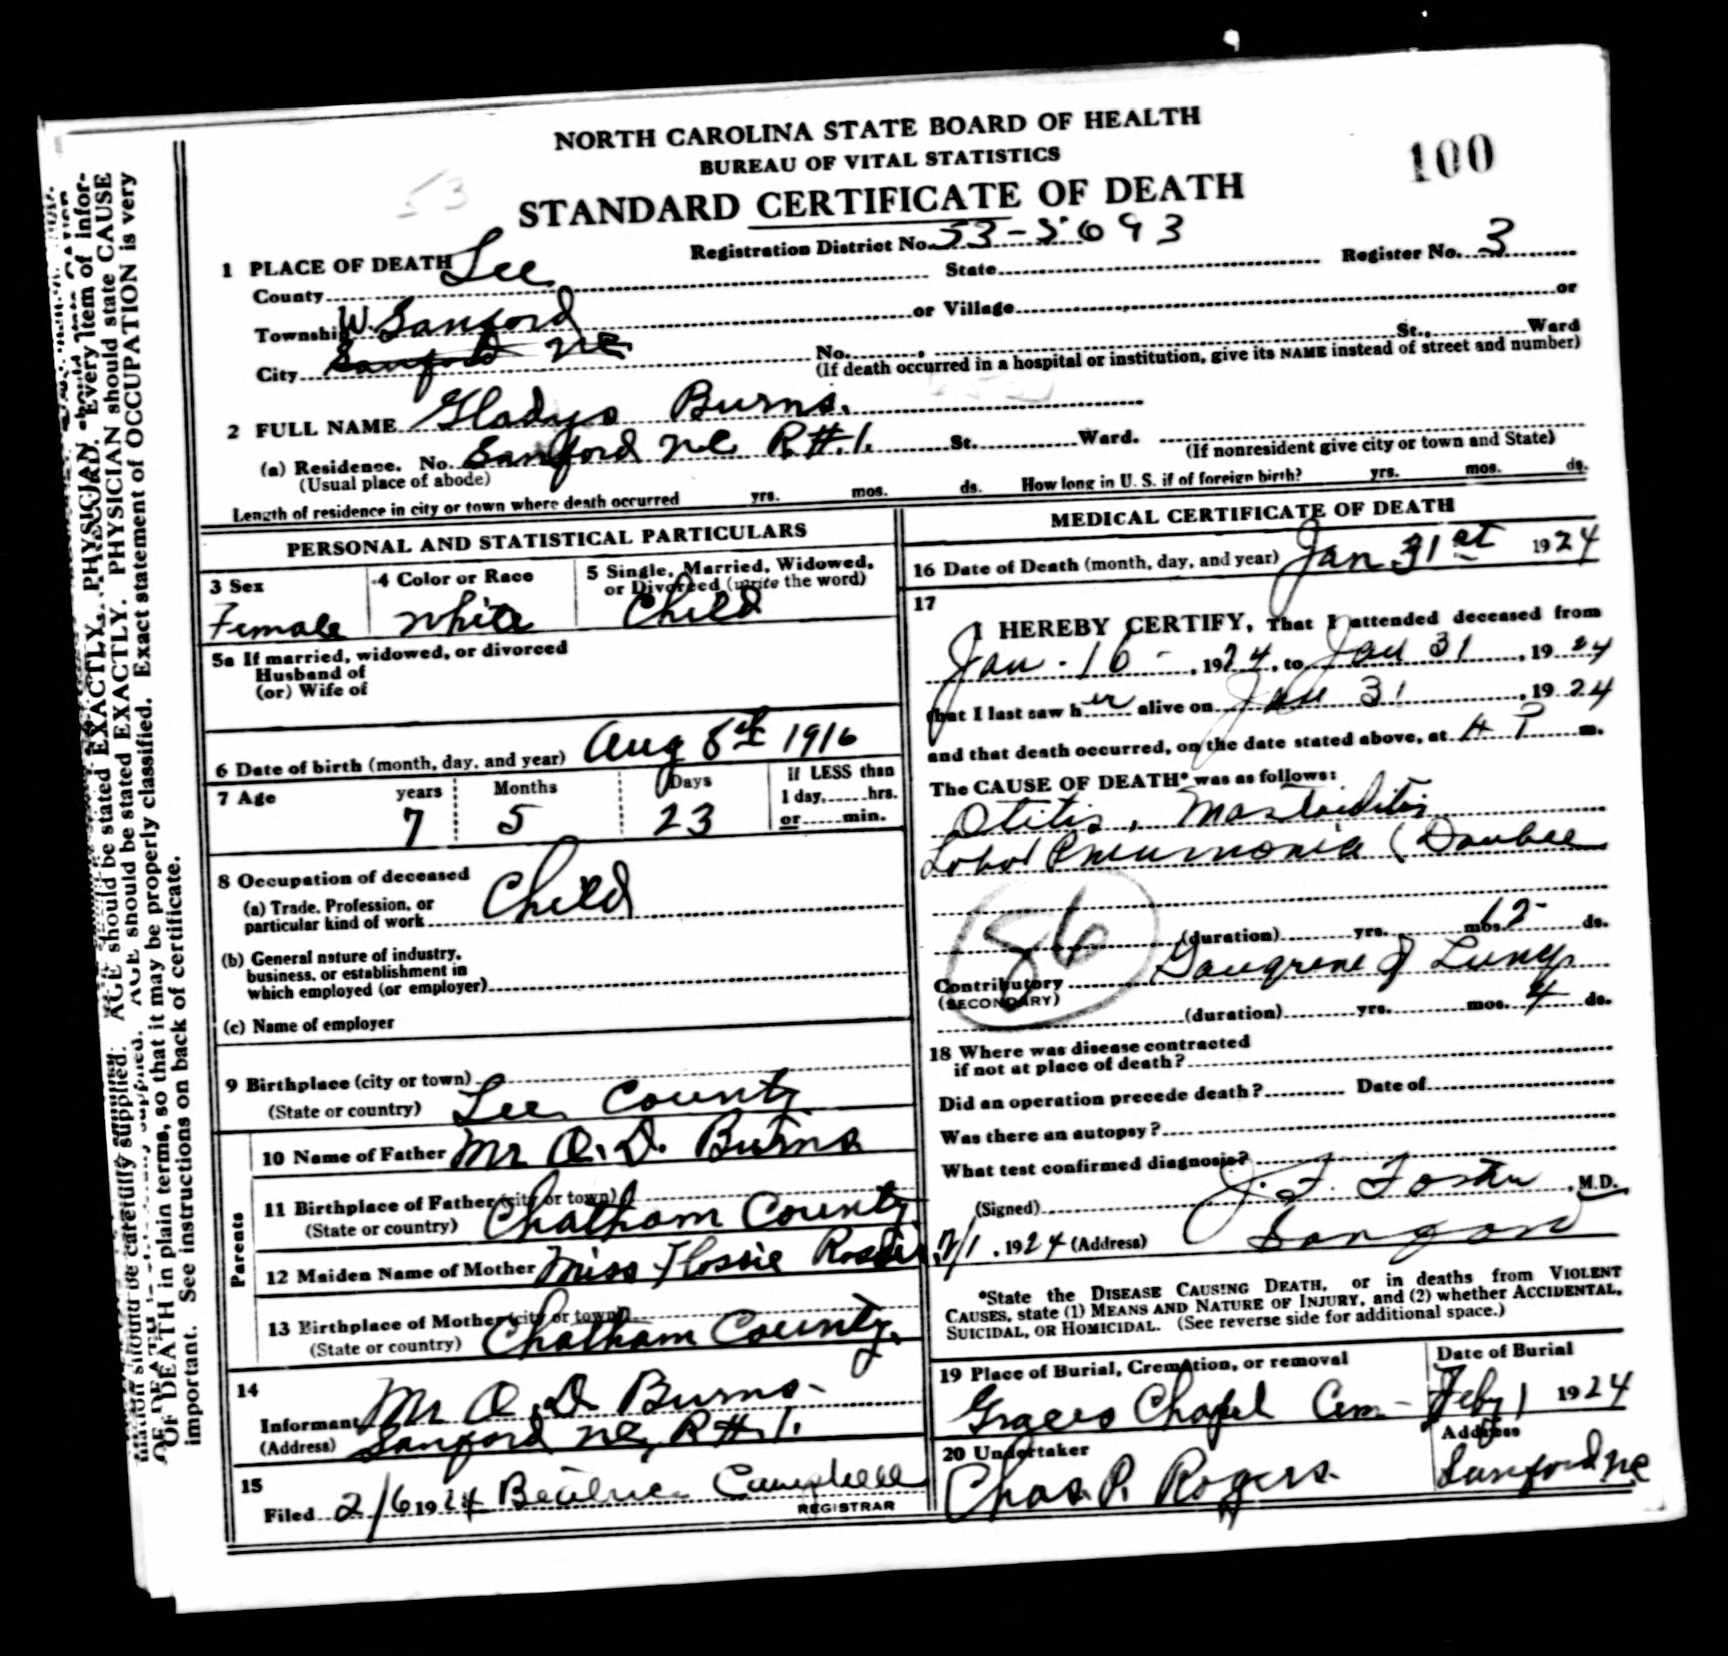 NORTH CAROLINA STATE BOARD OF HEALTH
BUREAU OF VITAL STATISTICS
100
53
STANDARD CERTIFICATE OF DEATH
Registration District No. 53-5093
Register No. 3
1 PLACE OF DEATH
County Lee State
Township W. Sanford or Village or
City Sanford NC No. , St., Ward
(If death occurred in a hospital or institution, give its NAME instead of street and number)
2 FULL NAME Gladys Burns.
(a) Residence. No. Sanford NC R#1. St. Ward.
(Usual place of abode) (If nonresident give city or town and State)
Length of residence in city or town where death occurred yrs. mos. ds. How long in U. S. if of foreign birth? yrs. mos. ds.
PERSONAL AND STATISTICAL PARTICULARS
3 Sex 4 Color or Race 5 Single, Married, Widowed,
or Divorced (write the word)
Female White Child
5a If married, widowed, or divorced
Husband of
(or) Wife of
6 Date of birth (month, day, and year) Aug 8th 1916
7 Age years Months Days If LESS than
1 day, hrs.
7 5 23 or min.
8 Occupation of deceased
(a) Trade, Profession, or
particular kind of work Child
(b) General nature of industry,
business, or establishment in
which employed (or employer)
(c) Name of employer
9 Birthplace (city or town)
(State or country) Lee County
Parents
10 Name of Father Mr O. D. Burns
11 Birthplace of Father (city or town)
(State or country) Chatham County
12 Maiden Name of Mother Miss Flossie
13 Birthplace of Mother (city or town)
(State or country) Chatham County.
14
Informant Mr O. D. Burns-
(Address) Sanford NC, R#1.
15
Filed 2/6 1924 Beatrice Campbell
REGISTRAR
MEDICAL CERTIFICATE OF DEATH
16 Date of Death (month, day, and year) Jan 31st 1924
17
I HEREBY CERTIFY, That I attended deceased from
Jan. 16 - , 1924, to Jan 31 , 1924
that I last saw her alive on Jan 31 , 1924
and that death occurred, on the date stated above, at 4 P m.
The CAUSE OF DEATH* was as follows:
Otitis, Mastoiditis
Lobar Pneumonia (Double
86
(duration) yrs. mos. 15 ds.
Contributory Gangrene of Lung
(SECONDARY)
(duration) yrs. mos. 4 ds.
18 Where was disease contracted
if not at place of death?
Did an operation precede death? Date of
Was there an autopsy?
What test confirmed diagnosis?
(Signed) J. F. Foster , M.D.
2/1 , 1924 (Address) Sanford
*State the DISEASE CAUSING DEATH, or in deaths from VIOLENT
CAUSES, state (1) MEANS AND NATURE OF INJURY, and (2) whether ACCIDENTAL,
SUICIDAL, OR HOMICIDAL. (See reverse side for additional space.)
19 Place of Burial, Cremation, or removal Date of Burial
Graces Chapel Cem- Feby 1 1924
20 Undertaker Address
Chas. P. Rogers. Sanford NC
mation should be carefully supplied. AGE should be stated EXACTLY. PHYSICIAN should state CAUSE
OF DEATH in plain terms, so that it may be properly classified. Exact statement of OCCUPATION is very
important. See instructions on back of certificate.